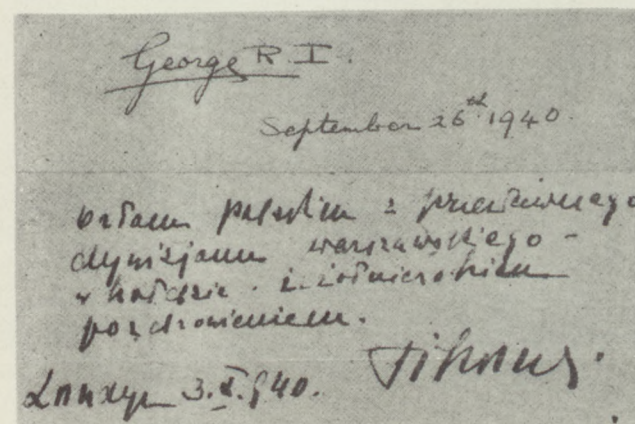 George R.I.
September 26th 1940.
Orłom polskim z przesławnego
dywizjonu warszawskiego -
w hołdzie i żołnierskim
pozdrowieniem.
Sikorski.
Londyn 3.X.940.